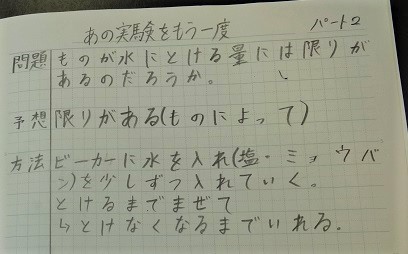 あの実験をもう一度 パート2
問題 ものが水にとける量には限りが
あるのだろうか。
予想 限りがある(ものによって)
方法 ビーカーに水を入れ(塩・ミョウバ
ン)を少しずつ入れていく。
とけるまでまぜて
↳とけなくなるまでいれる。